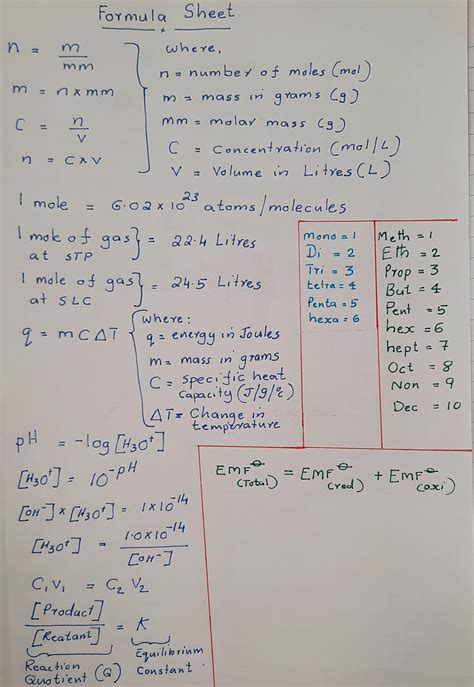 Formula Sheet
n = m/mm
m = n x mm
C = n/V
n = C x V
where,
n = number of moles (mol)
m = mass in grams (g)
mm = molar mass (g)
C = Concentration (mol/L)
V = Volume in Litres (L)
1 mole = 6.02 x 10²³ atoms/molecules
1 mole of gas at STP } = 22.4 Litres
1 mole of gas at SLC } = 24.5 Litres
q = mCΔT
where:
q = energy in Joules
m = mass in grams
C = Specific heat
Capacity (J/g/2)
ΔT = Change in
temperature
mono = 1
Di = 2
Tri = 3
tetra = 4
Penta = 5
hexa = 6
Meth = 1
Eth = 2
Prop = 3
But = 4
Pent = 5
hex = 6
hept = 7
Oct = 8
Non = 9
Dec = 10
pH = -log [H₃O⁺]
[H₃O⁺] = 10^-pH
[OH⁻] x [H₃O⁺] = 1x10⁻¹⁴
[H₃O⁺] = 1.0x10⁻¹⁴/[OH⁻]
C₁V₁ = C₂V₂
[Product]/[Reatant] = K
Reaction
Quotient (Q)
Equilibrium
Constant
EMF⊖(Total) = EMF⊖(red) + EMF⊖(oxi)